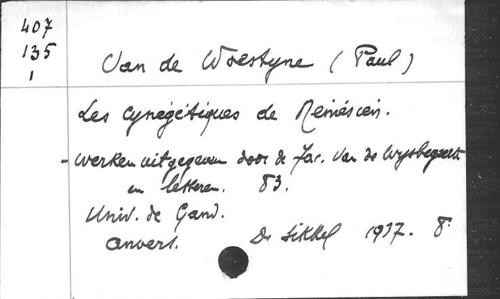 407
135
1
Van de Woestyne (Paul)
Les Cynégétiques de Némésien.
- Werken uitgegeven door de Fac. Van de Wysbegeerte
en letteren. 83.
Univ. de Gand.
Anvers. De Sikkel 1937. 8°